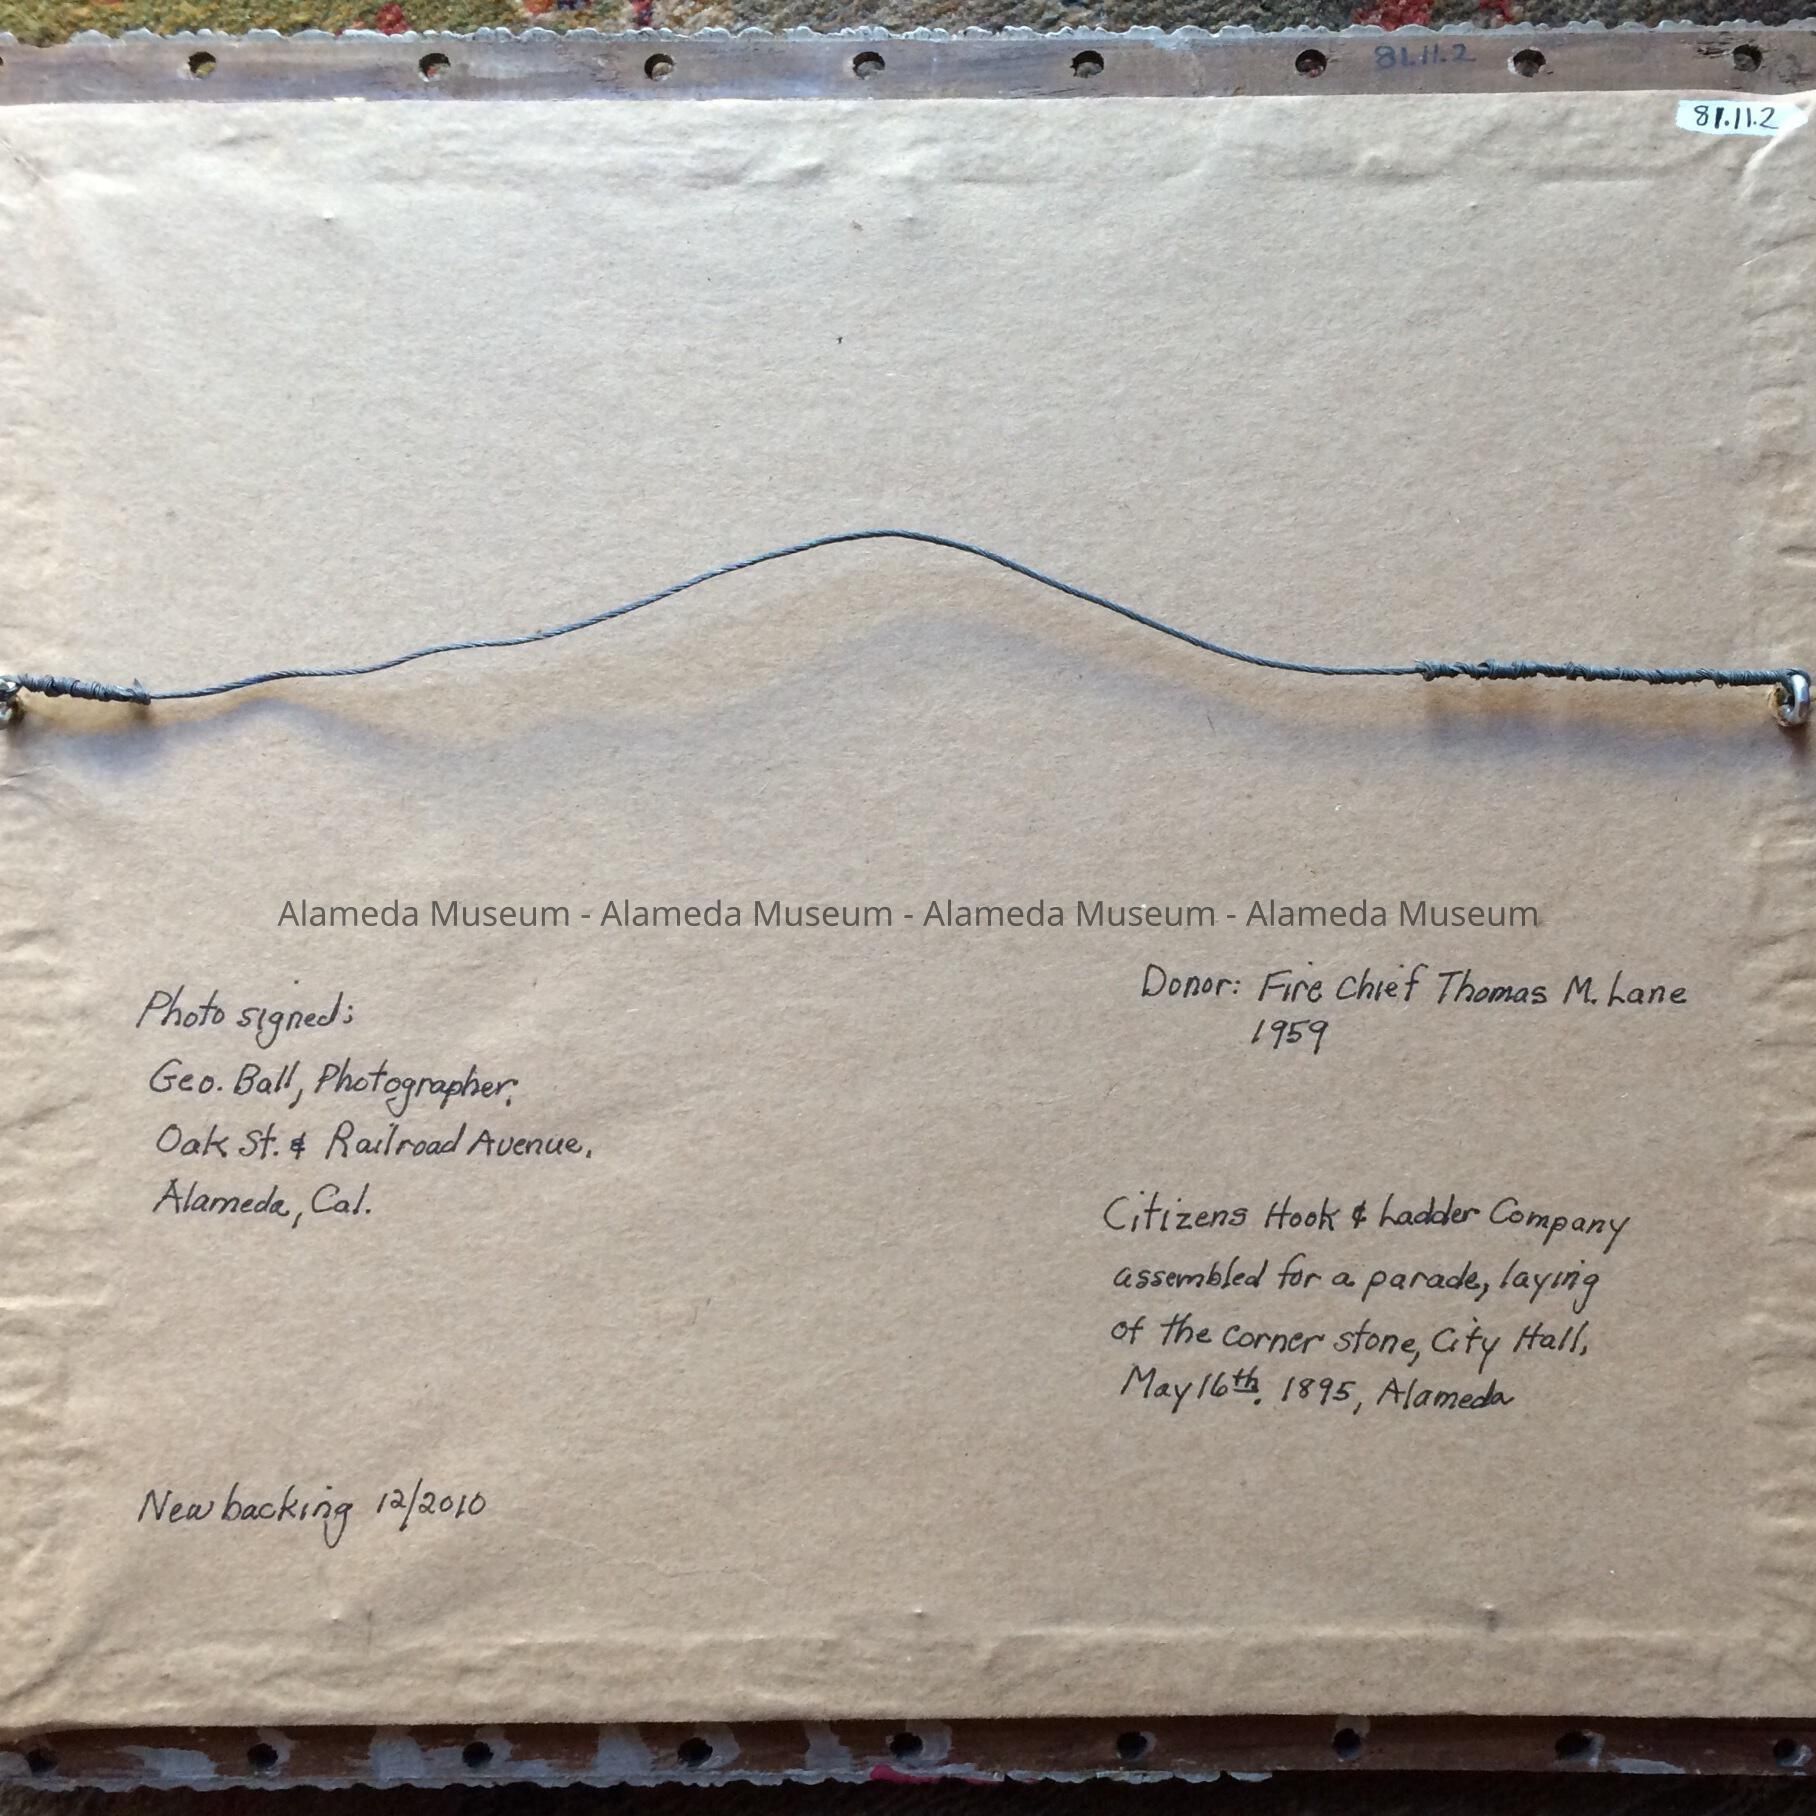 81.11.2
81.11.2
Alameda Museum - Alameda Museum - Alameda Museum - Alameda Museum
Photo signed:
Geo. Ball, Photographer,
Oak St. & Railroad Avenue.
Alameda, Cal.
Donor: Fire Chief Thomas M. Lane
1959
Citizens Hook & Ladder Company
assembled for a parade, laying
of the corner stone, City Hall,
May 16th. 1895, Alameda
New backing 12/2010